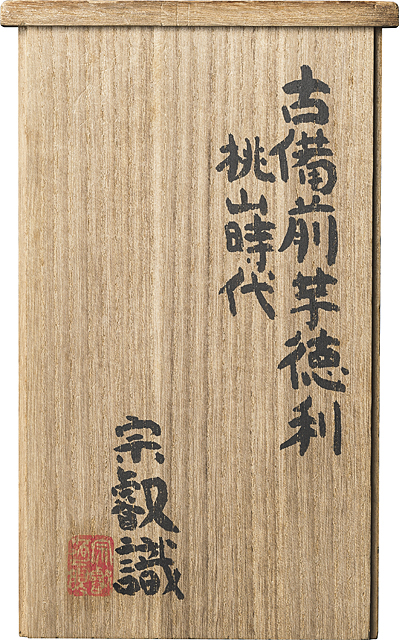 古備前芋徳利
桃山時代
宗叡識